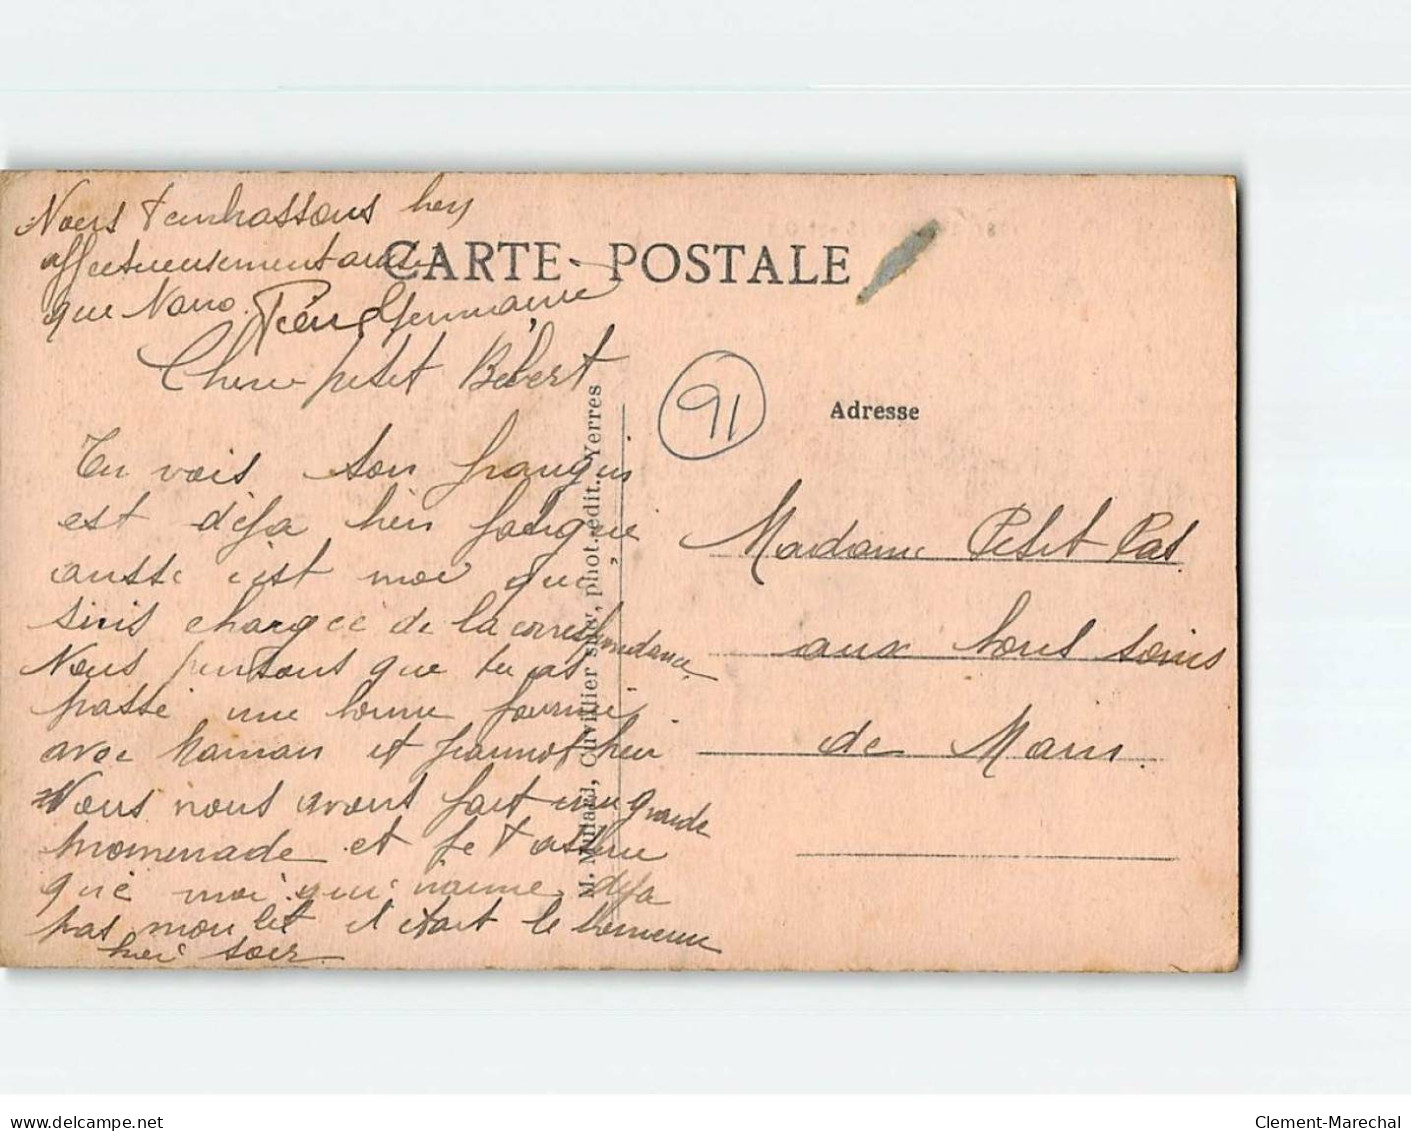 Nous t'embrassons bien
affectueusement ainsi
que Nano. Germaine
CARTE POSTALE
Cher petit Bébert
91
Adresse
Tu vois ton frangin
est déjà bien fatigué
aussi c'est moi qui
suis chargée de la correspondance
Nous pensons que tu as
passé une bonne journée
avec Maman et Jeannot hier
Nous nous avons fait une grande
promenade et je t'assure
que moi qui n'aime déjà
pas mon lit il était le bienvenu
hier soir
M. Mulard, Cuvillier sucr, phot.-édit., Yerres
Madame Petit Pas
aux bons soins
de Mam.
www.delcampe.net
Clement-Marechal